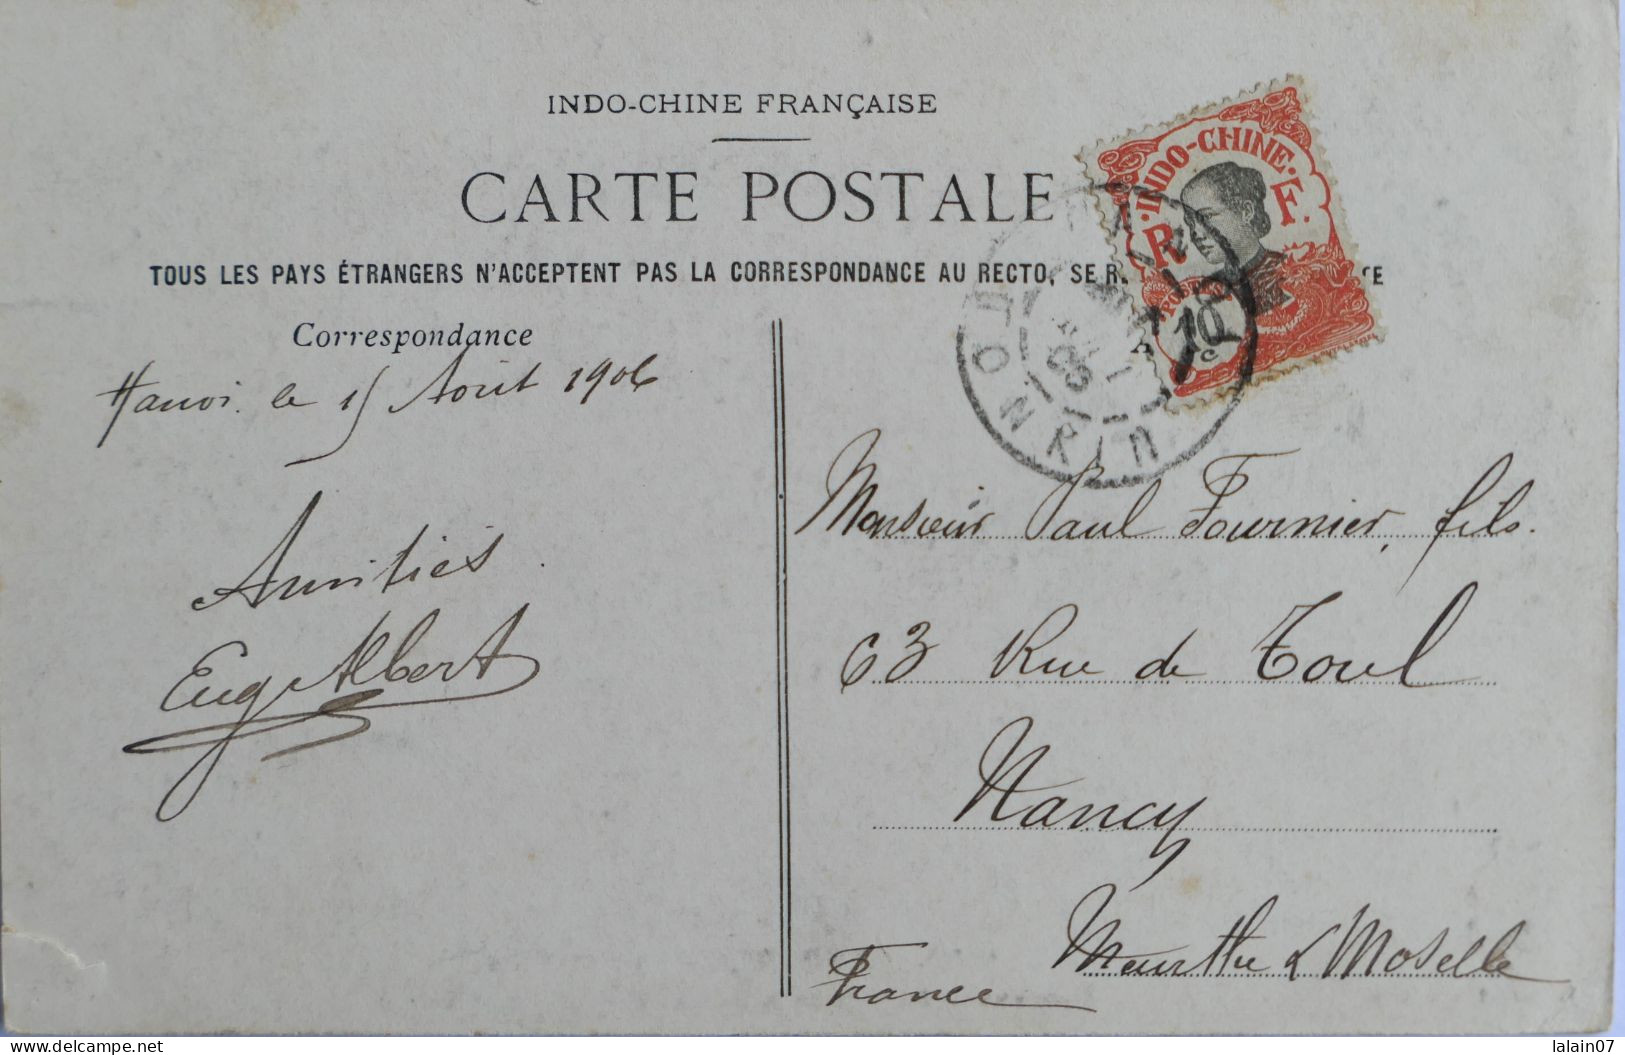 INDO-CHINE FRANÇAISE
CARTE POSTALE
TOUS LES PAYS ÉTRANGERS N'ACCEPTENT PAS LA CORRESPONDANCE AU RECTO, SE R
CE
·INDO-CHINE·
R F.
POSTES
10 c
TONKIN
Correspondance
Hanoi le 15 Août 1906
Amitiés.
Eug Albert
Monsieur Paul Fournier, fils.
63 Rue de Toul
Nancy
Meurthe & Moselle
France
delcampe.net
lalain07